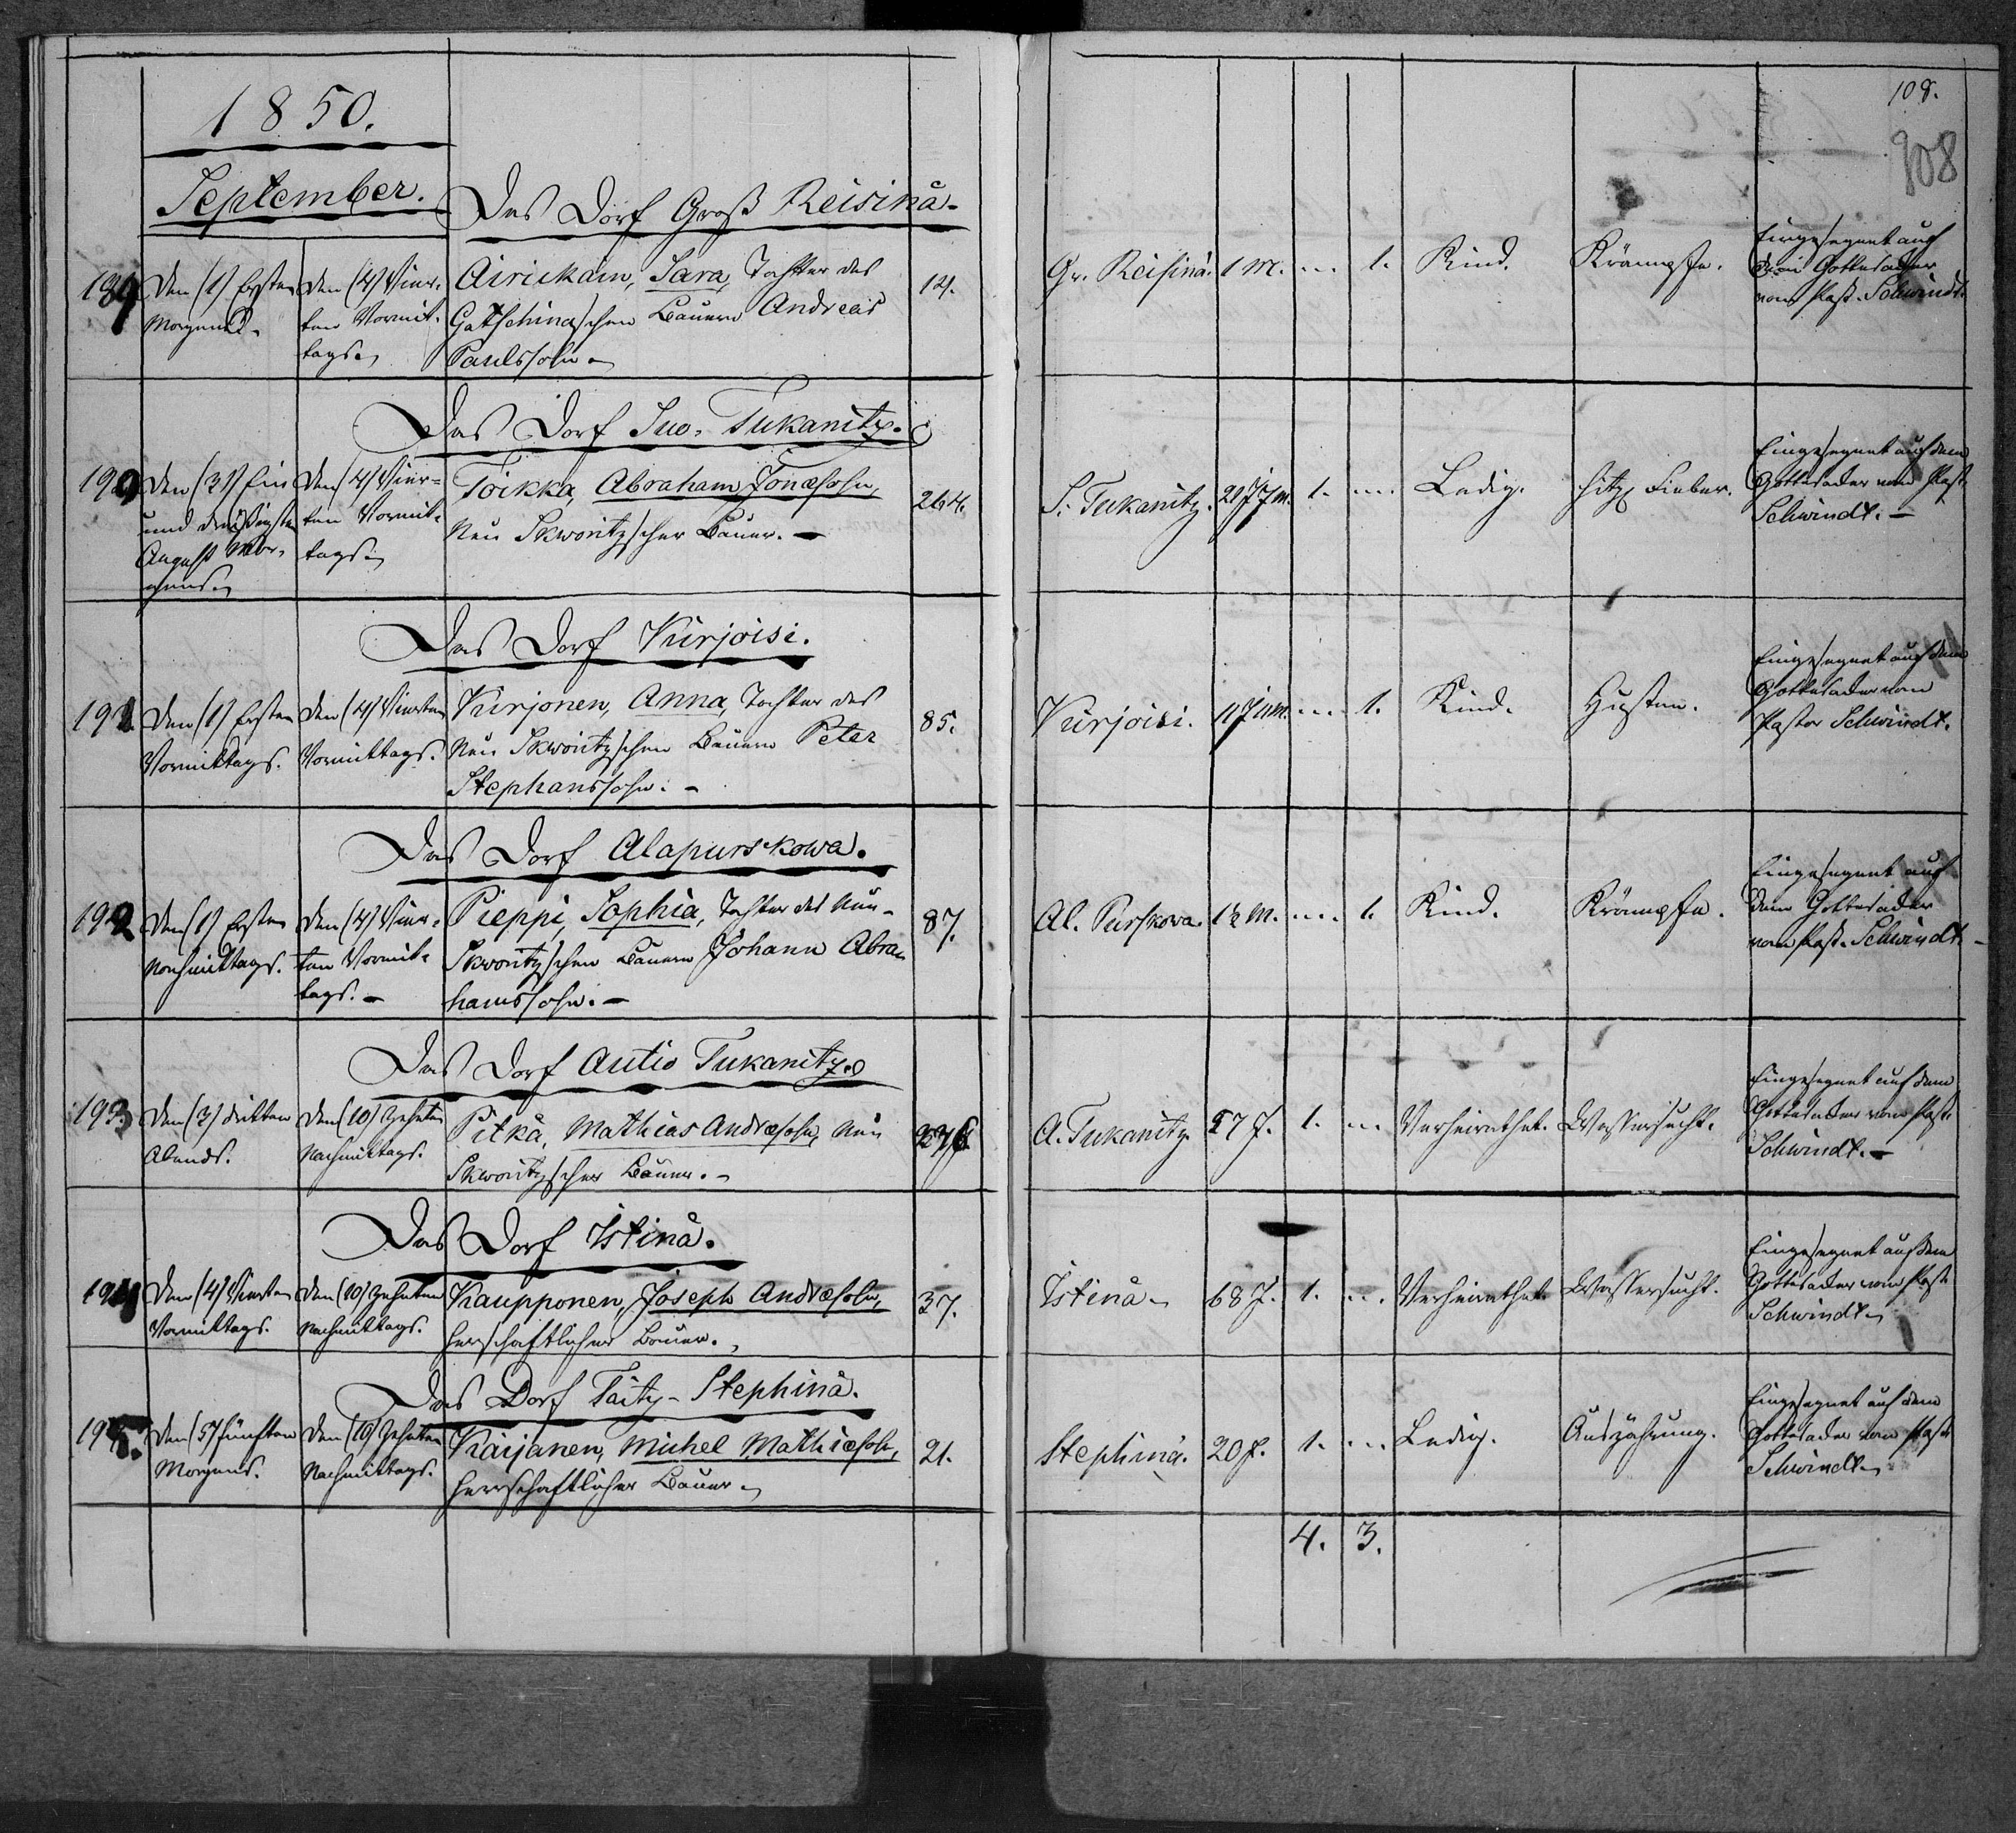 1850.
September.
Das Dorf Groß Reisinä.
189
Den (1) Ersten
Morgens.
Den (4) Vier-
ten Vormit-
tags.
Airickain, Sara, Tochter des
Gatschinaschen Bauern Andreas
Paulssohn.
14.
Das Dorf Suo-Tukanitz.
190
Den (31) Ein
und dreißigsten
August Mor-
gens.
Den (4) Vier-
ten Vormit-
tags.
Toikka, Abraham Jonæsohn,
Neu Skworitzscher Bauer.
264.
Das Dorf Kurjoisi.
191.
Den (1) Ersten
Vormittags.
Den (4) Vierten
Vormittags.
Kurjonen, Anna, Tochter des
Neu Skworitzschen Bauern Peter
Stephanssohn.
85.
Das Dorf Alapurskowa.
192
Den (1) Ersten
Nachmittags.
Den (4) Vier-
ten Vormit-
tags.
Pieppi, Sophia, Tochter des Neu-
Skworitzschen Bauern Johann Abra-
hamssohn.
87.
Das Dorf Autio Tukanitz.
193.
Den (3) dritten
Abends.
Den (10) Zehnten
Nachmittags.
Pitkä, Mathias Andræsohn, Neu
Skworitzscher Bauer.
Das Dorf Istinä.
194
Den (4) Vierten
Vormittags.
Den (10) Zehnten
Nachmittags.
Kaupponen, Joseph Andræsohn,
herrschaftlicher Bauer.
37.
Das Dorf Taitz-Stephinä.
195.
Den (5) fünften
Morgens.
Den (10) Zehnten
Nachmittags.
Karjanen, Michel Mathiæsohn,
herrschaftlicher Bauer.
21.
108.
908
Gr. Reisinä. 1 M. 1. Kind. Krämpfe.
Eingesegnet auf
dem Gottesacker
vom Past. Schwindt.
S. Tukanitz. 20 J 7 M. 1. Ledig. hitz. Fieber.
Eingesegnet auf dem
Gottesacker vom Past.
Schwindt.
Kurjoisi. 11 M. 1. Kind. Husten.
Eingesegnet auf dem
Gottesacker vom
Pastor Schwindt.
Al. Purskowa. 1½ M. 1. Kind. Krämpfe.
Eingesegnet auf
dem Gottesacker
vom Past. Schwindt.
A. Tukanitz. 57 J. 1. Verheirathet. Wassersucht.
Eingesegnet auf dem
Gottesacker vom Past.
Schwindt.
Istinä. 68 J. 1. Verheirathet. Wassersucht.
Eingesegnet auf dem
Gottesacker vom Past.
Schwindt.
Stephinä. 20 J. 1. Ledig. Auszehrung.
Eingesegnet auf dem
Gottesacker vom Past.
Schwindt.
4. 3.